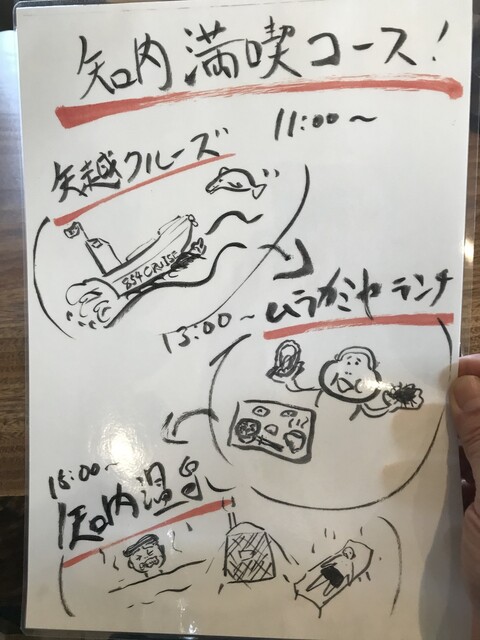 知内満喫コース!
11:00〜
矢越クルーズ
854 CRUISE
13:00〜
ムラカミヤランチ
15:00〜
知内温泉